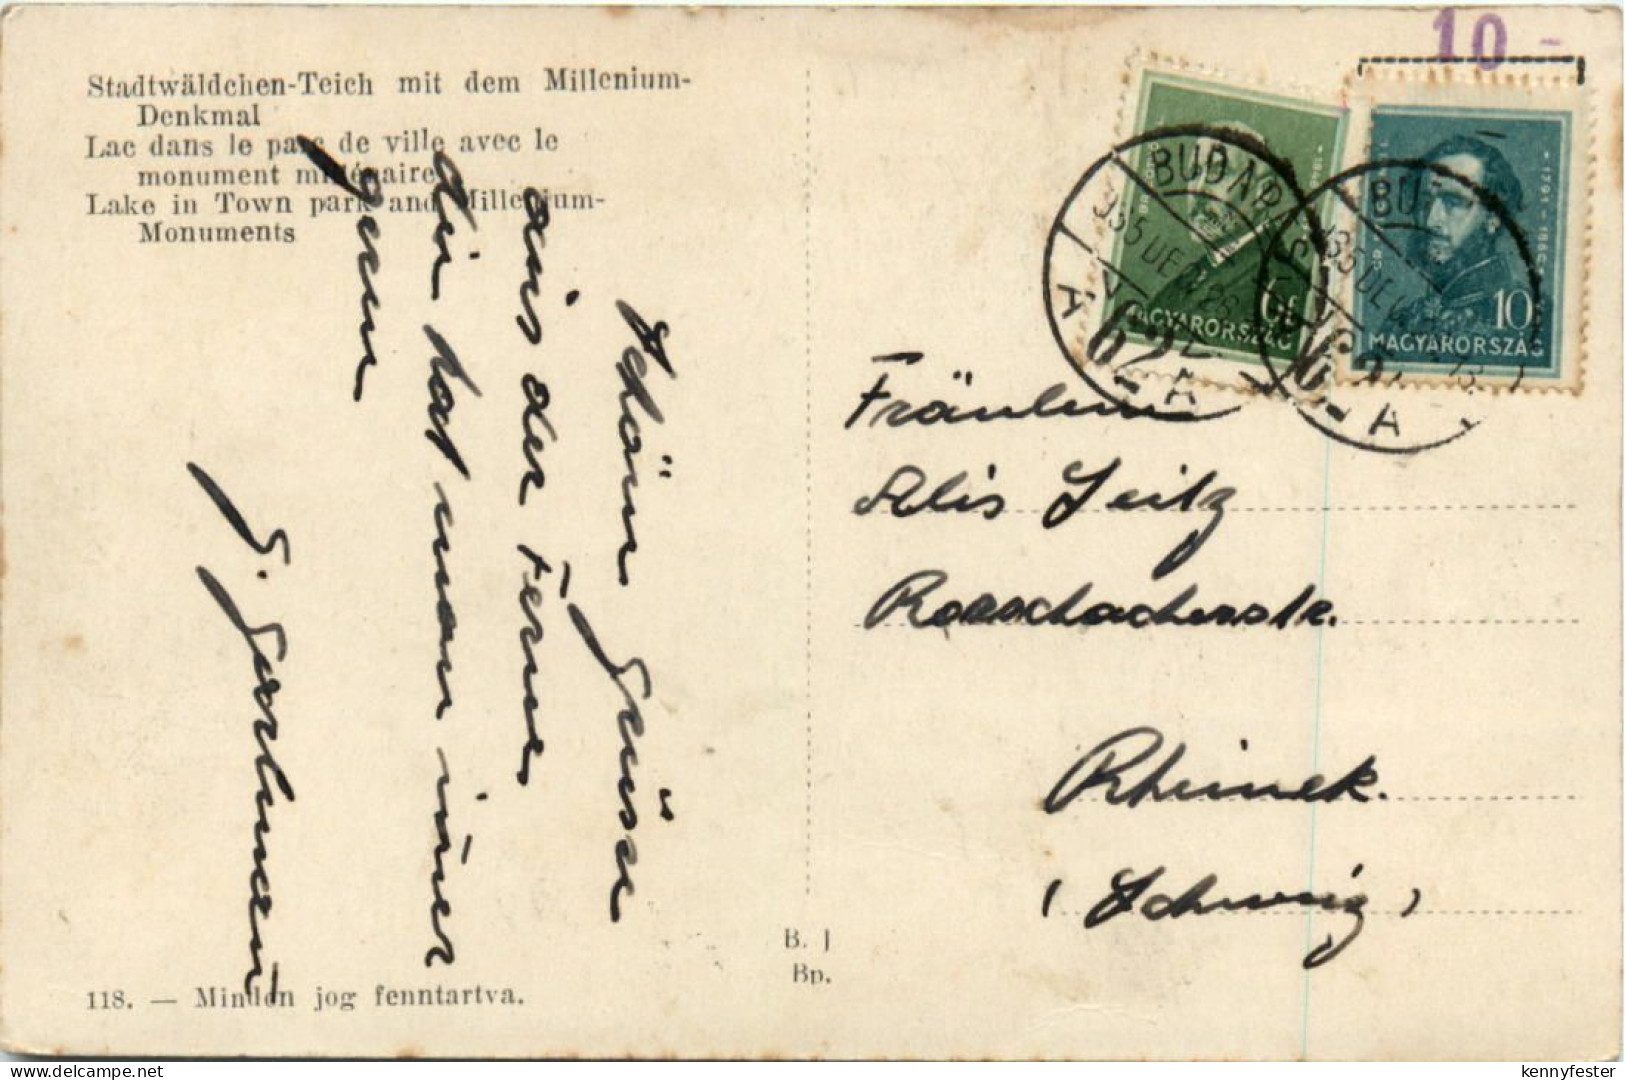 10 -
Stadtwäldchen-Teich mit dem Millenium-
Denkmal
Lac dans le parc de ville avec le
monument millénaire
Lake in Town park and Millenium-
Monuments
Schöne Grüsse
aus der Ferne
die hat man immer
gern
BUDAPEST
935 DE
62
A
A
6f
MAGYARORSZÁG
BU
935 DE
A
1791-1860
10
MAGYARORSZÁG
Fräulein
Alis Seitz
Rorschacherstr.
Rheinek.
(Schweiz)
B. J
Bp.
118. — Minden jog fenntartva.
delcampe.net
kennyfester